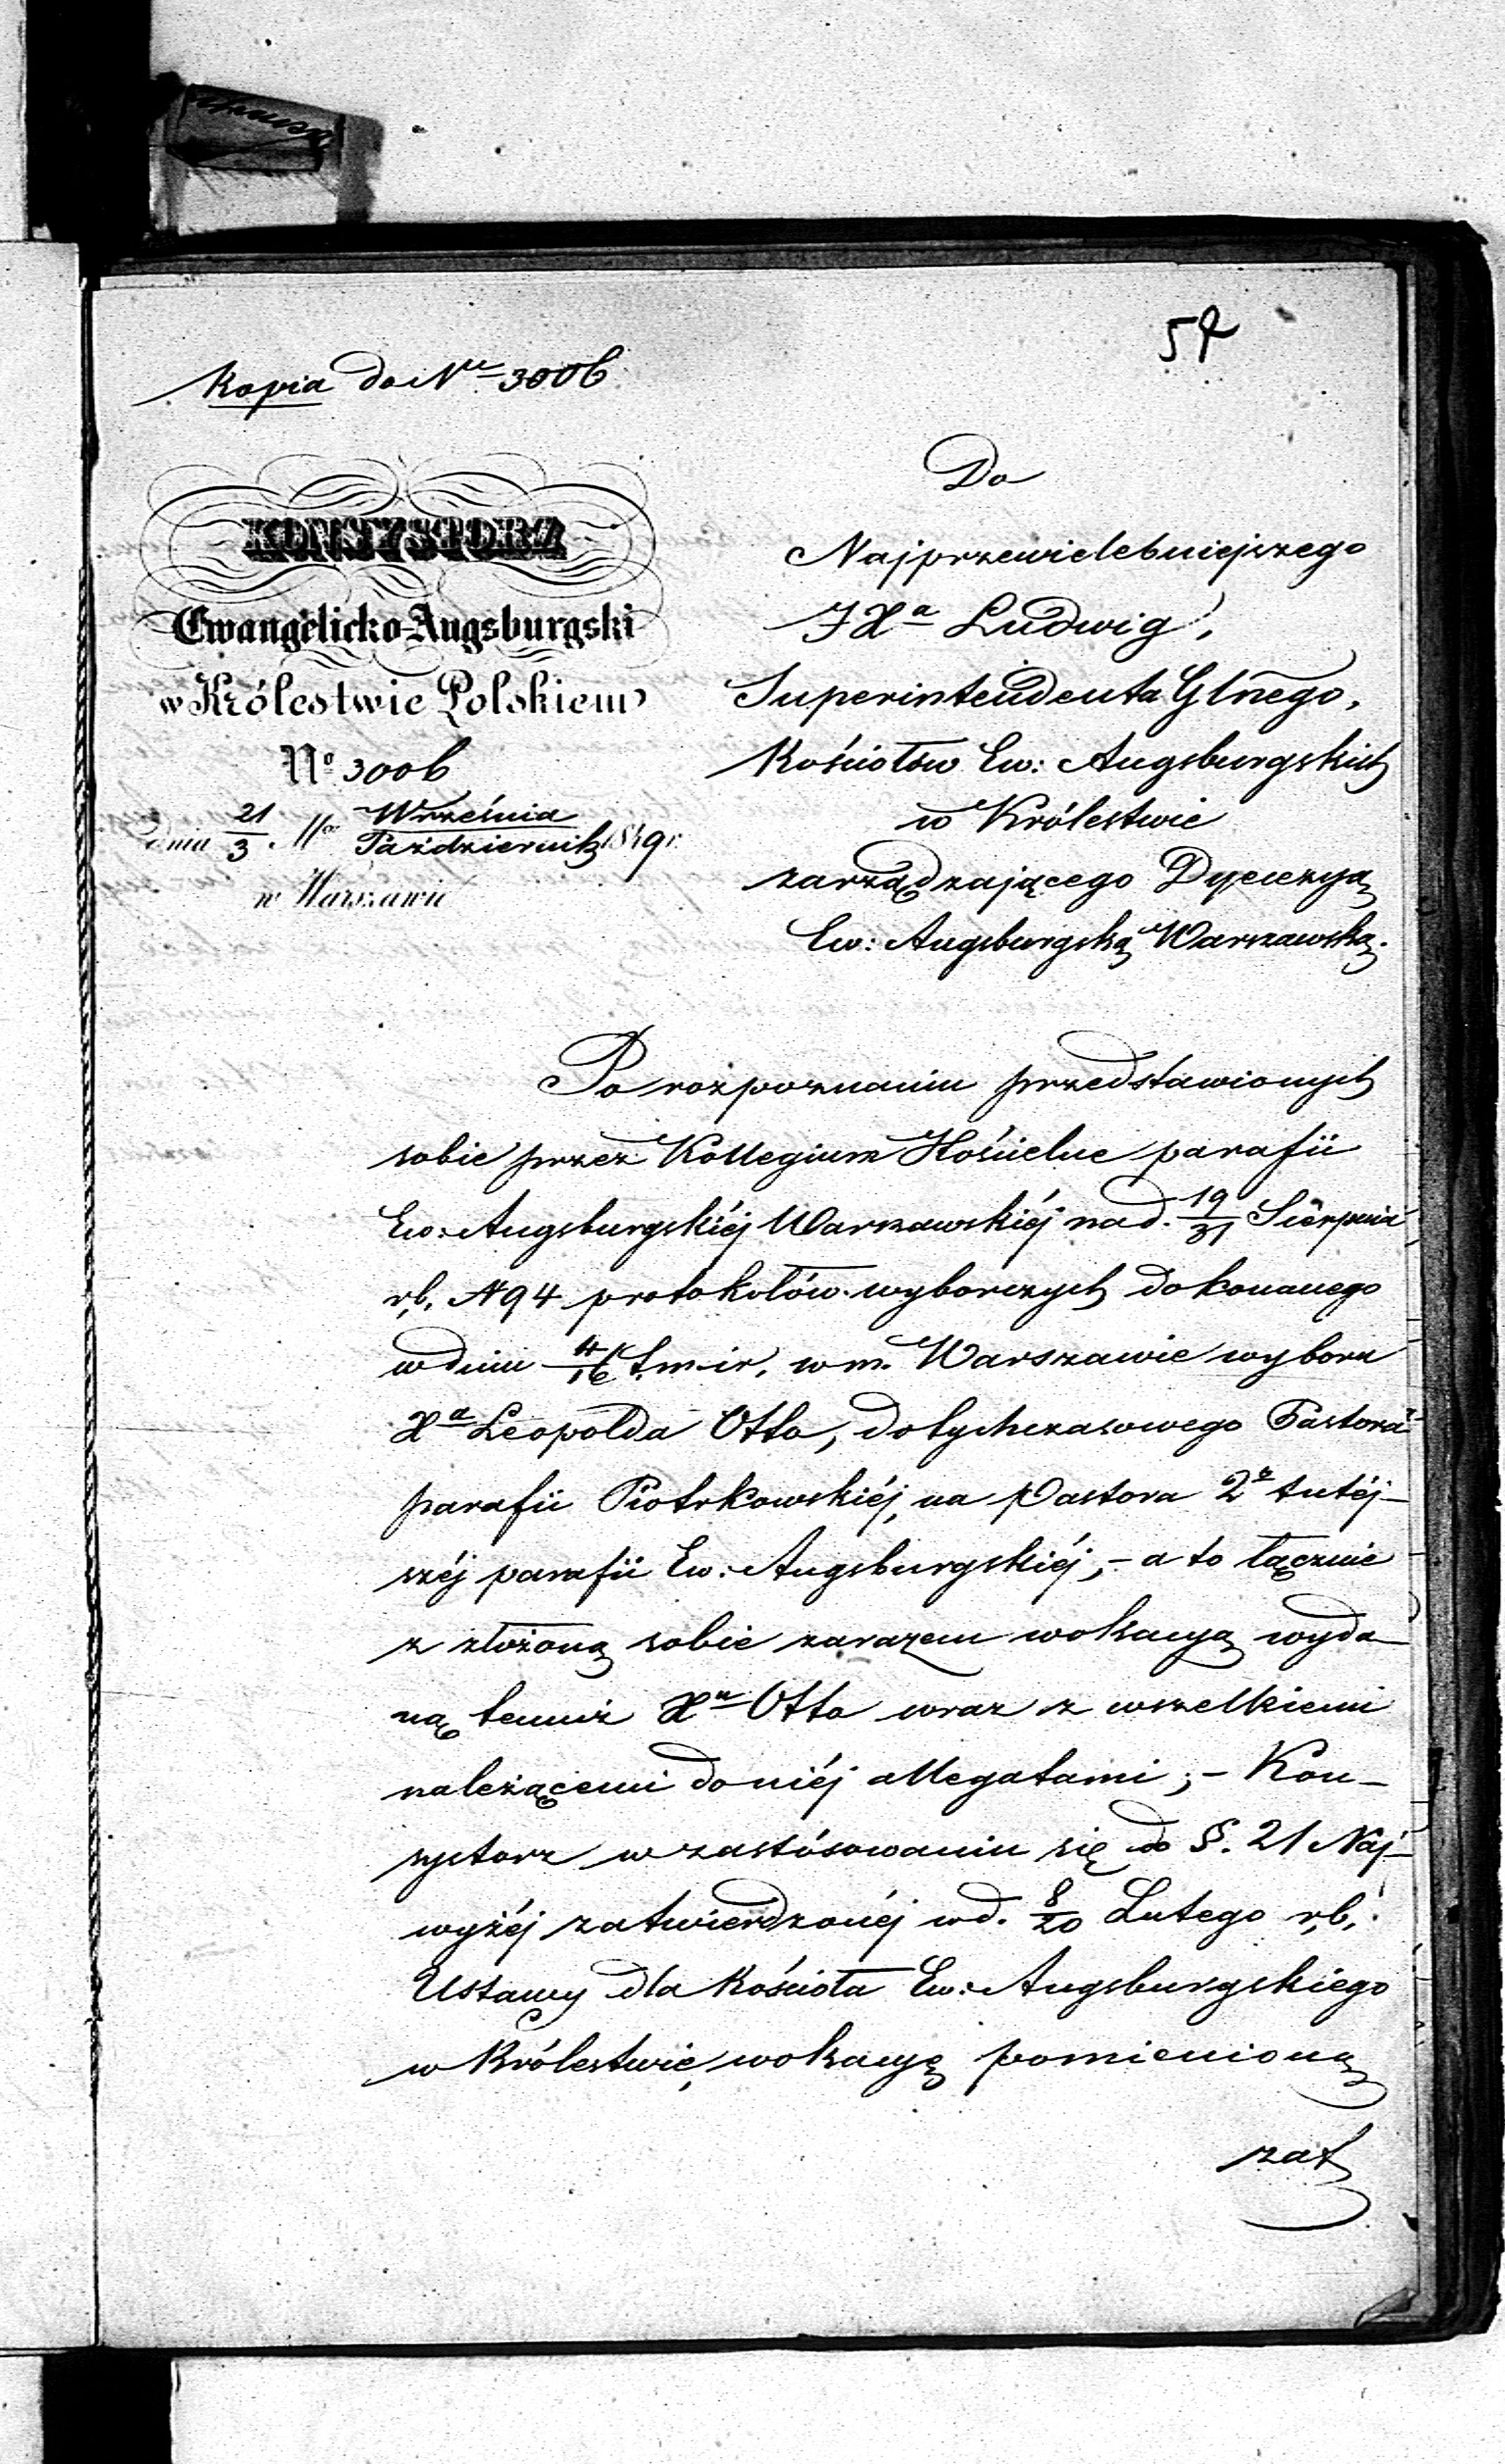 57
Kopia do Nru 3006
KONSYSTORZ
Ewangelicko-Augsburgski
w Królestwie Polskiem
No 3006
dnia 21/3 Mca Września/Październik 1849 r.
w Warszawie
Do
Najprzewielebniejszego
JXa Ludwig,
Superintendenta Glnego,
Kościołów Ew: Augsburgskich
w Królestwie
zarządzającego Dyecezyą
Ew: Augsburgską Warszawską.
Po rozpoznaniu przedstawionych
sobie przez Kollegium Kościelne parafii
Ew: Augsburgskiéj Warszawskiéj na d. 19/31 Sierpnia
r,b, N 94 protokołów wyborczych dokonanego
w dniu 4/16 t. m. i r. w m. Warszawie wyboru
Xa Leopolda Otto, dotychczasowego Pastora
parafii Piotrkowskiéj, na Pastora 2o tutéj-
széj parafii Ew: Augsburgskiéj, - a to łącznie
z złożoną sobie zarazem wokacyą wyda-
ną temuż Xu Otto wraz z wszelkiemi
należącemi do niéj allegatami; - Kon-
systorz w zastósowaniu się do §. 21 Naj-
wyżéj zatwierdzonéj w d. 8/20 Lutego r,b,
Ustawy dla Kościoła Ew: Augsburgskiego
w Królestwie, wokacyę pomienioną
zat